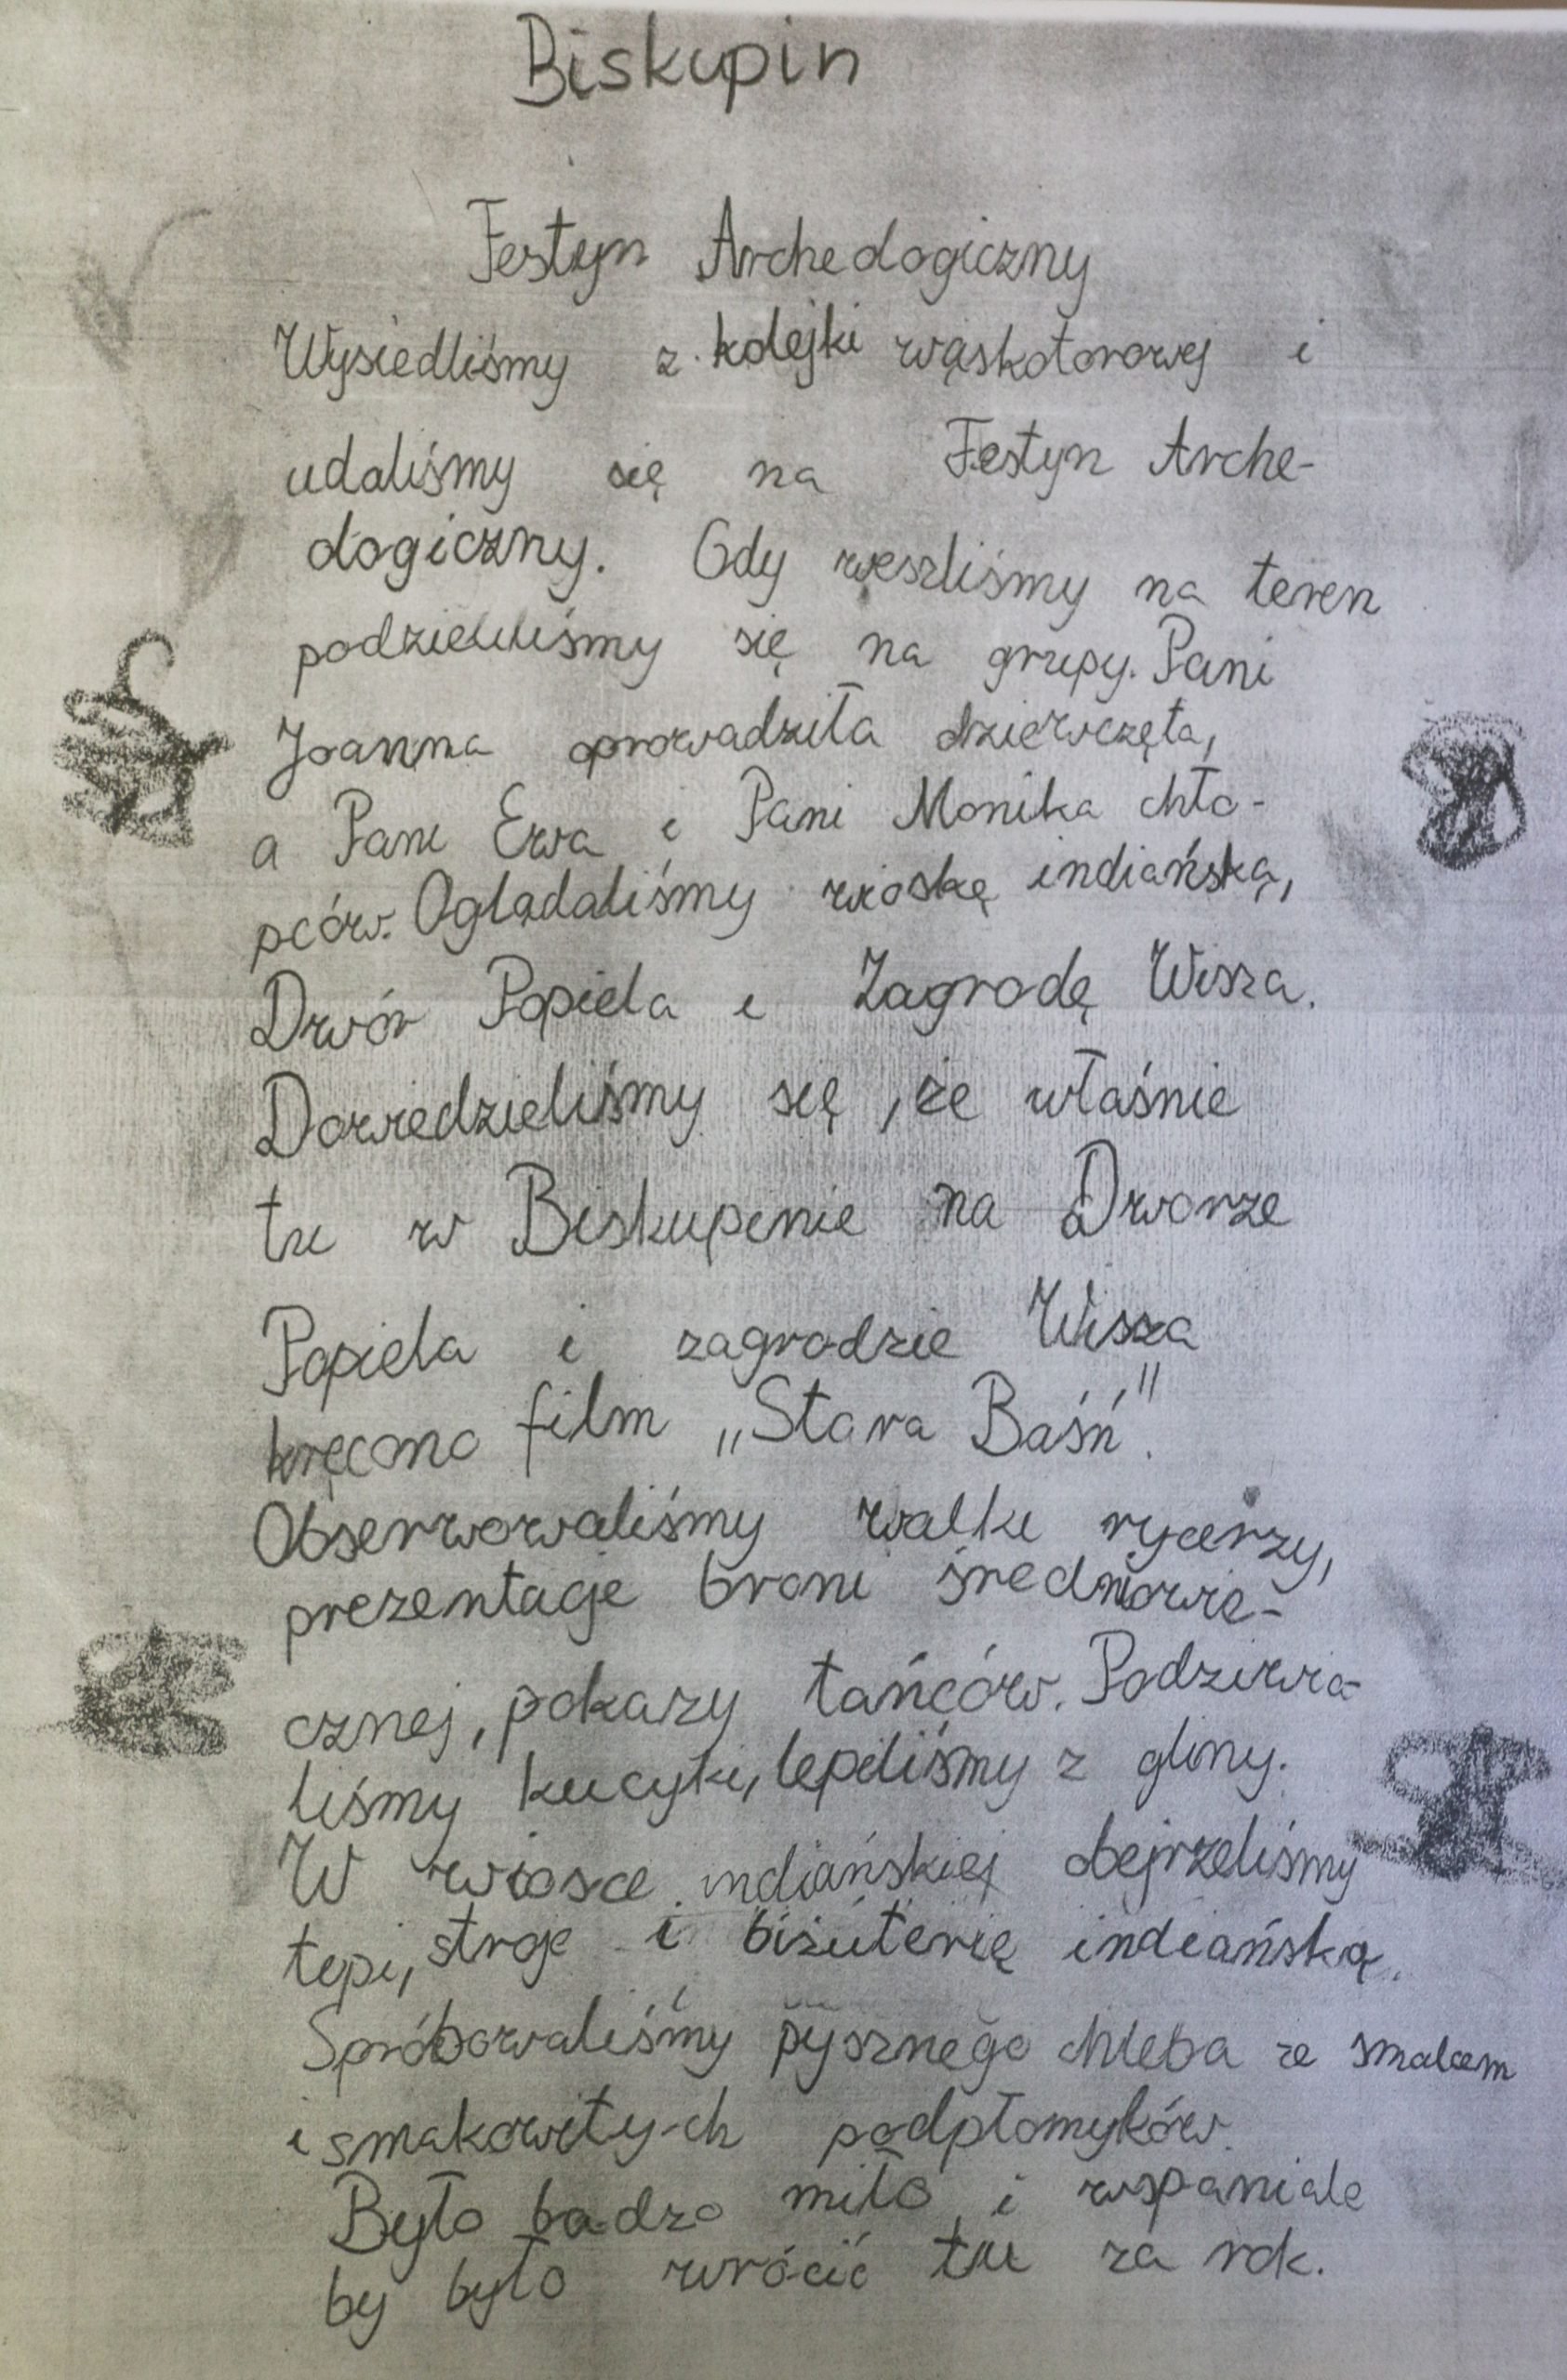 Biskupin
Festyn Archeologiczny
Wysiedliśmy z kolejki wąskotorowej i
udaliśmy się na Festyn Arche-
ologiczny. Gdy weszliśmy na teren
podzieliliśmy się na grupy. Pani
Joanna oprowadziła dziewczęta,
a Pani Ewa i Pani Monika chło-
pców. Oglądaliśmy wioskę indiańską,
Dwór Popiela i Zagrodę Wisza.
Dowiedzieliśmy się, że właśnie
tu w Biskupinie na Dworze
Popiela i zagrodzie Wisza
kręcono film „Stara Baśń".
Obserwowaliśmy walki rycerzy,
prezentacje broni średniowie-
cznej, pokazy tańców. Podziwia-
liśmy kucyki, lepiliśmy z gliny.
W wiosce indiańskiej obejrzeliśmy
tepi, stroje i biżuterię indiańską.
Spróbowaliśmy pysznego chleba ze smalcem
i smakowitych podpłomyków.
Było badzo miło i wspaniale
by było wrócić tu za rok.